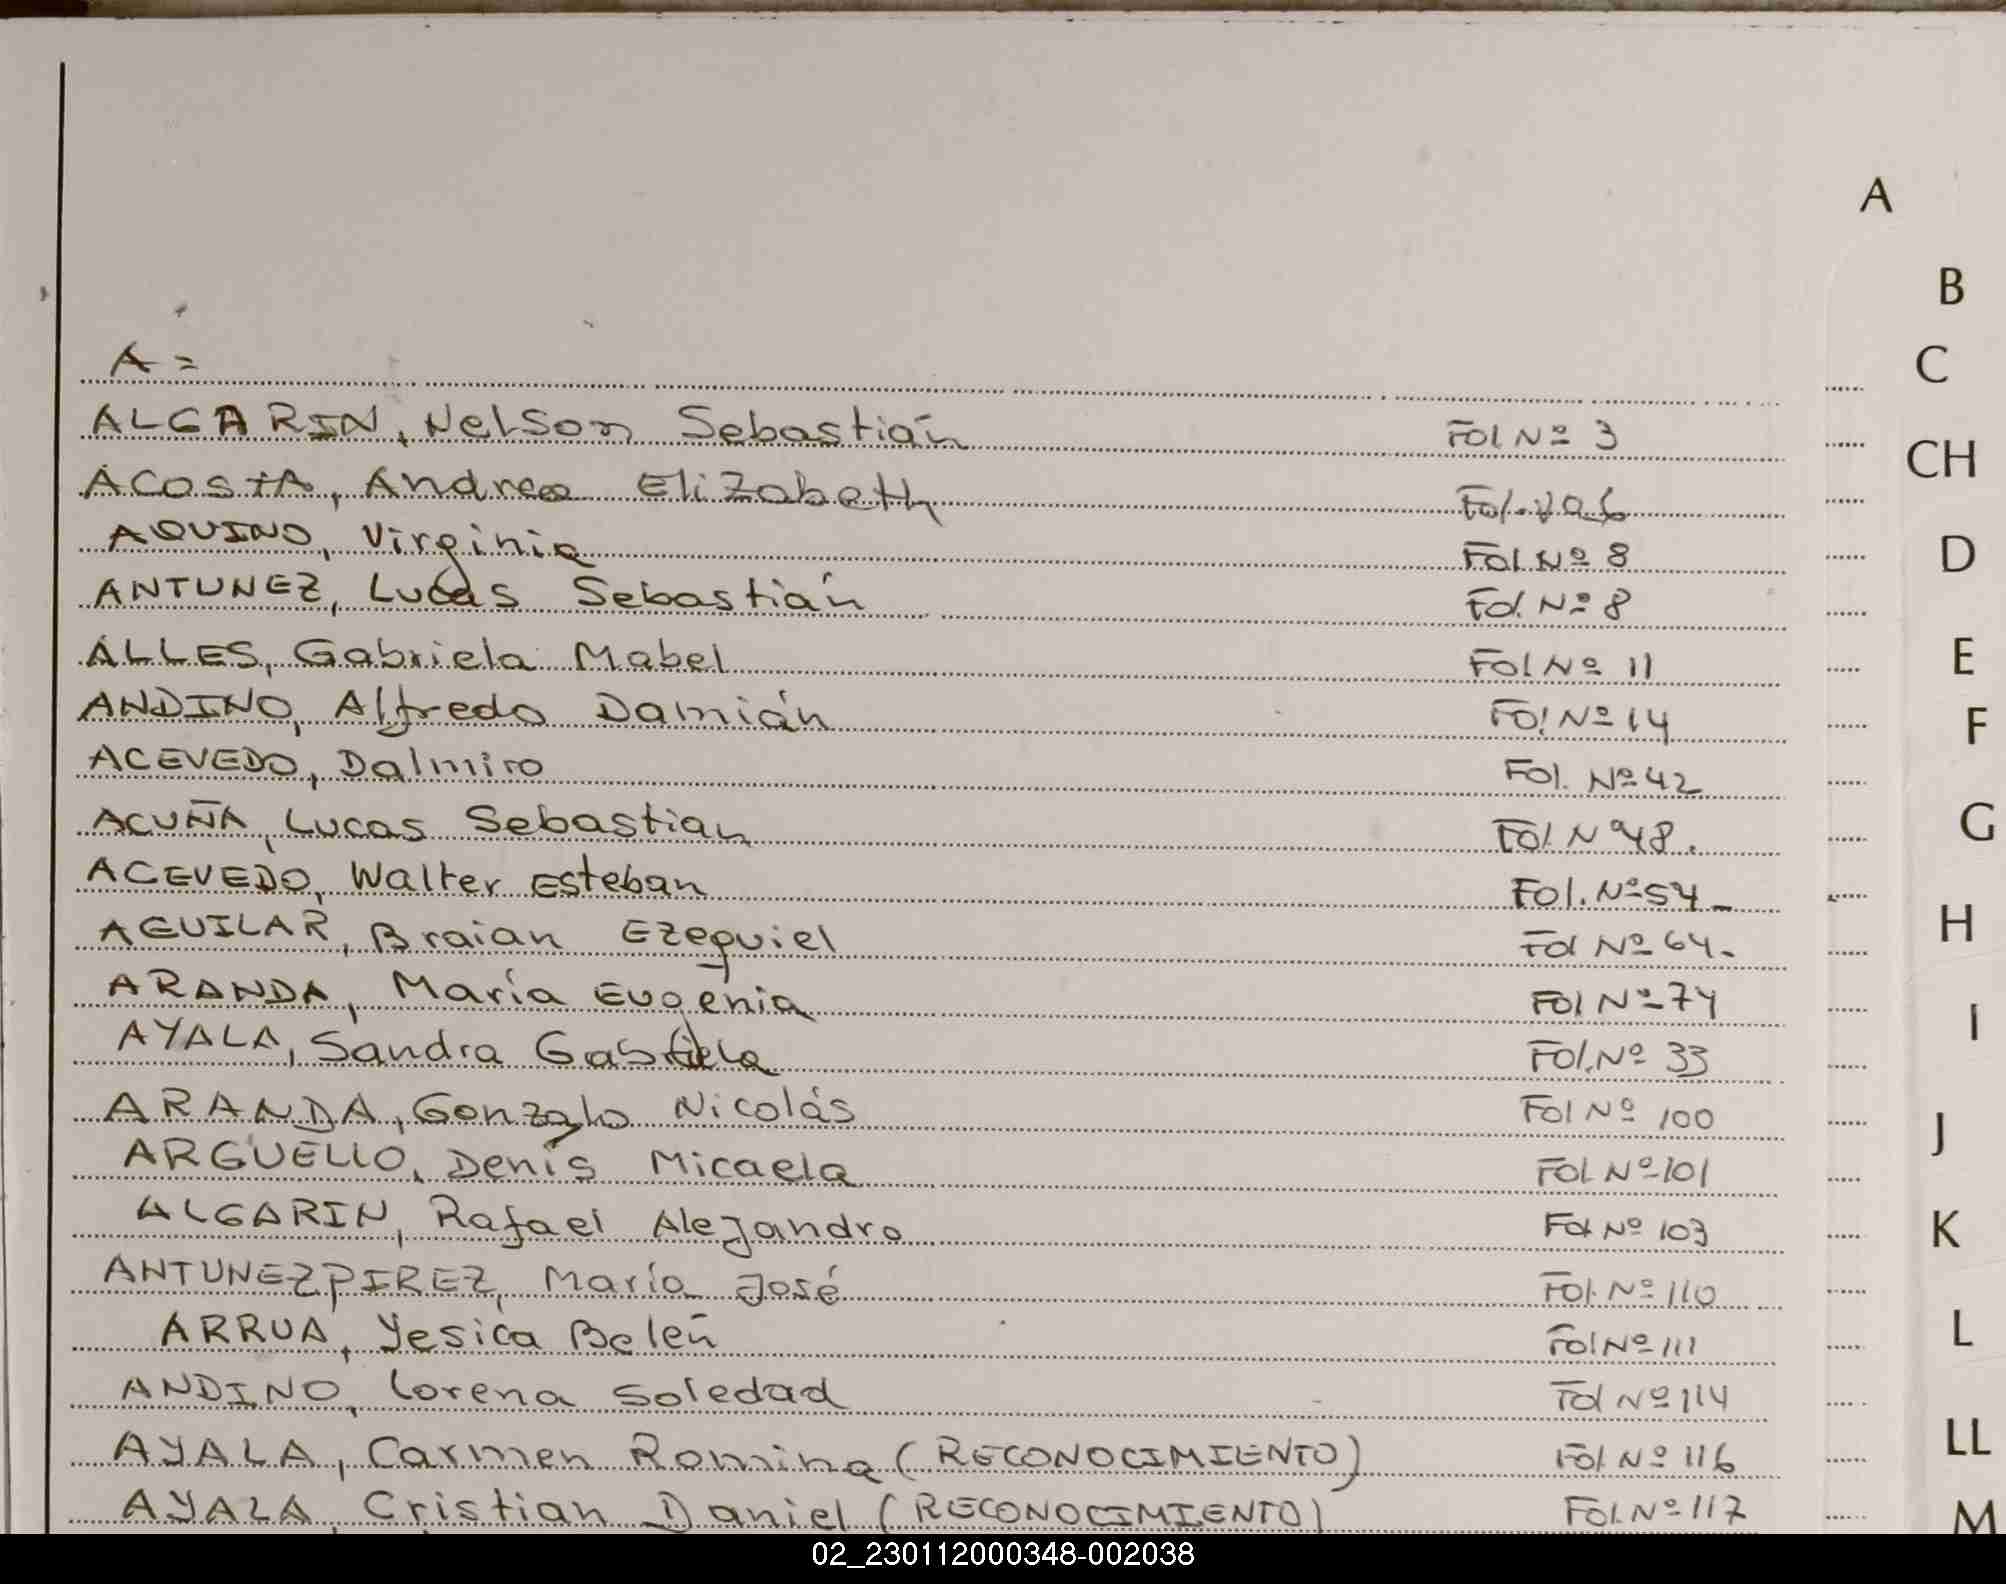 A
B
C
CH
D
E
F
G
H
I
J
K
L
LL
M
A =
ALGARIN, Nelson Sebastián Fol Nº 3
ACOSTA, Andrea Elizabeth Fol. Nº 6
AQUINO, Virginia Fol Nº 8
ANTUNEZ, Lucas Sebastián Fol. Nº 8
ALLES, Gabriela Mabel Fol Nº 11
ANDINO, Alfredo Damián Fol Nº 14
ACEVEDO, Dalmiro Fol. Nº 42
ACUÑA, Lucas Sebastian Fol. Nº 48.
ACEVEDO, Walter Esteban Fol. Nº 54_
AGUILAR, Braian Ezequiel Fol Nº 64.
ARANDA, María Eugenia Fol Nº 74
AYALA, Sandra Gabriela Fol. Nº 33
ARANDA, Gonzalo Nicolás Fol Nº 100
ARGUELLO, Denis Micaela Fol Nº 101
ALGARIN, Rafael Alejandro Fol Nº 103
ANTUNEZ PIREZ, María José Fol. Nº 110
ARRUA, Yesica Belén Fol Nº 111
ANDINO, Lorena Soledad Fol Nº 114
AYALA, Carmen Romina (RECONOCIMIENTO) Fol. Nº 116
AYALA, Cristian Daniel (RECONOCIMIENTO) Fol. Nº 117
02_230112000348-002038